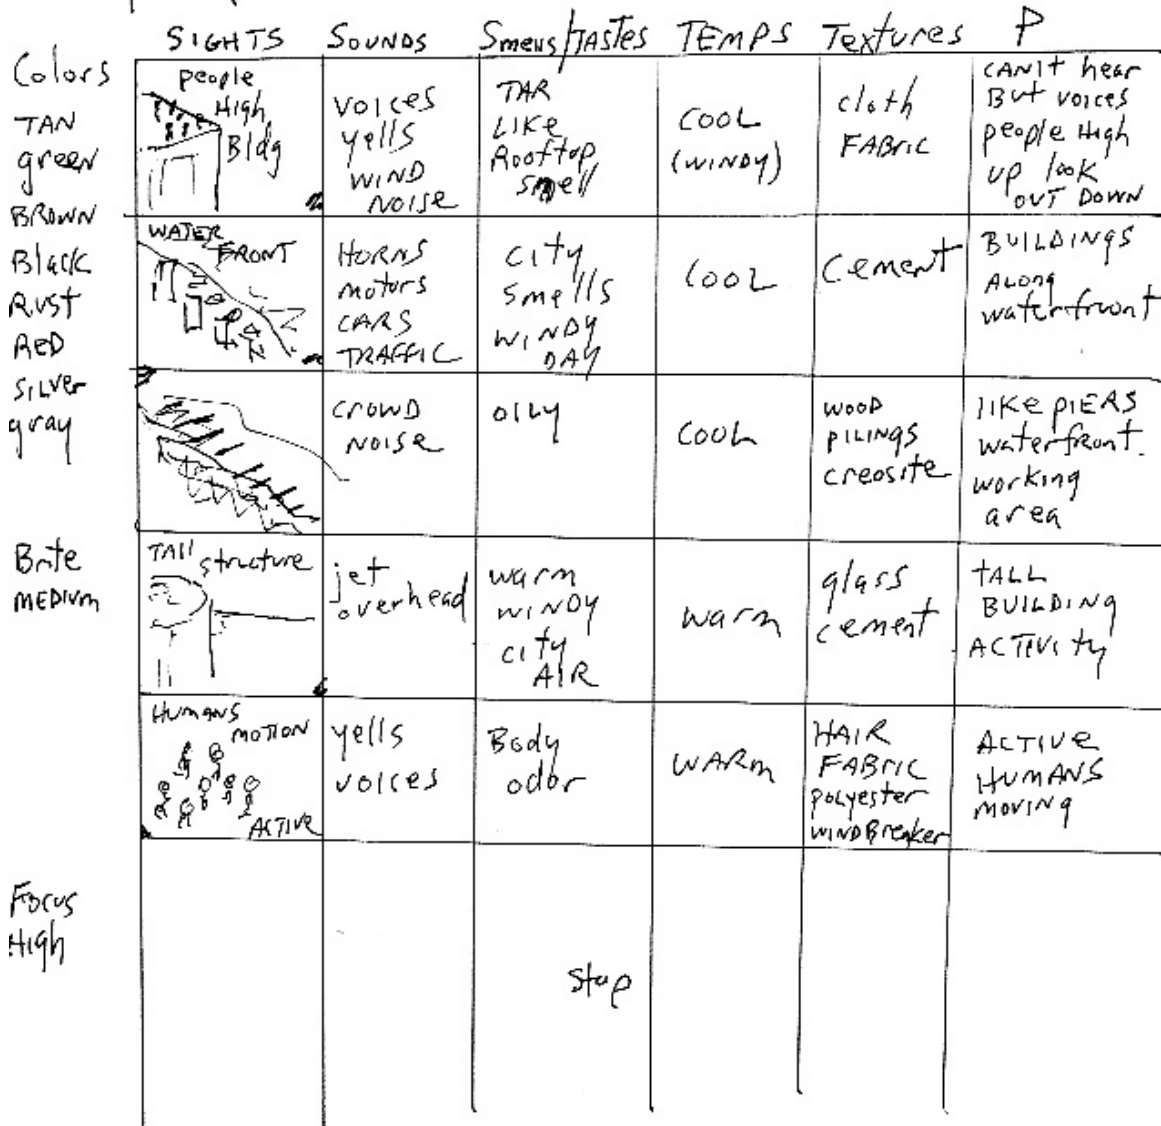 SIGHTS
SOUNDS
Smells/TASTES
TEMPS
Textures
P
Colors
TAN
green
BROWN
Black
RUST
RED
SILVER
gray
people
High
Bldg
VOICES
yells
WIND
NOISE
TAR
LIKE
Rooftop
smell
COOL
(WINDY)
cloth
FABRIC
CAN't hear
But voices
people High
up look
OUT DOWN
WATER
FRONT
HORNS
motors
CARS
TRAFFIC
city
smells
WINDY
DAY
COOL
Cement
BUILDINGS
ALONG
waterfront
CROWD
NOISE
OILY
COOL
WOOD
PILINGS
creosite
like PIERS
waterfront.
working
area
Brite
MEDIUM
TAll
structure
jet
overhead
warm
WINDY
city
AIR
warm
glass
cement
TALL
BUILDING
ACTIVITY
HUMANS
MOTION
ACTIVE
yells
voices
Body
odor
WARM
HAIR
FABRIC
polyester
WINDBreaker
ACTIVE
HUMANS
MOVING
Focus
High
stop